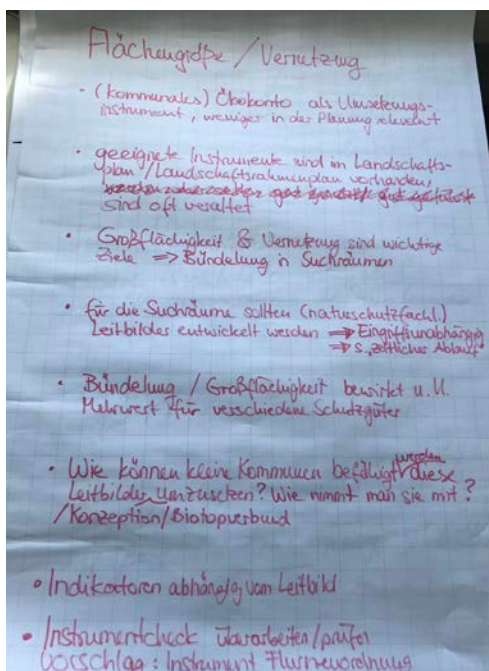 Flächengröße / Vernetzung
• (kommunales) Ökokonto als Umsetzungs-
instrument, weniger in der Planung relevant
• geeignete Instrumente sind im Landschafts-
plan / Landschaftsrahmenplan vorhanden,
sind oft veraltet
• Großflächigkeit & Vernetzung sind wichtige
Ziele ⇒ Bündelung in Suchräumen
• für die Suchräume sollten (naturschutzfachl.)
Leitbilder entwickelt werden ⇒ Eingriffsunabhängig
⇒ s. "zeitlicher Ablauf"
• Bündelung / Großflächigkeit bewirkt u.U.
Mehrwert für verschiedene Schutzgüter
werden
• Wie können kleine Kommunen befähigt diese
Leitbilder umzusetzen? Wie nimmt man sie mit?
/Konzeption/Biotopverbund
• Indikatoren abhängig vom Leitbild
• Instrumentcheck überarbeiten/prüfen
Vorschlag: Instrument Flurneuordnung